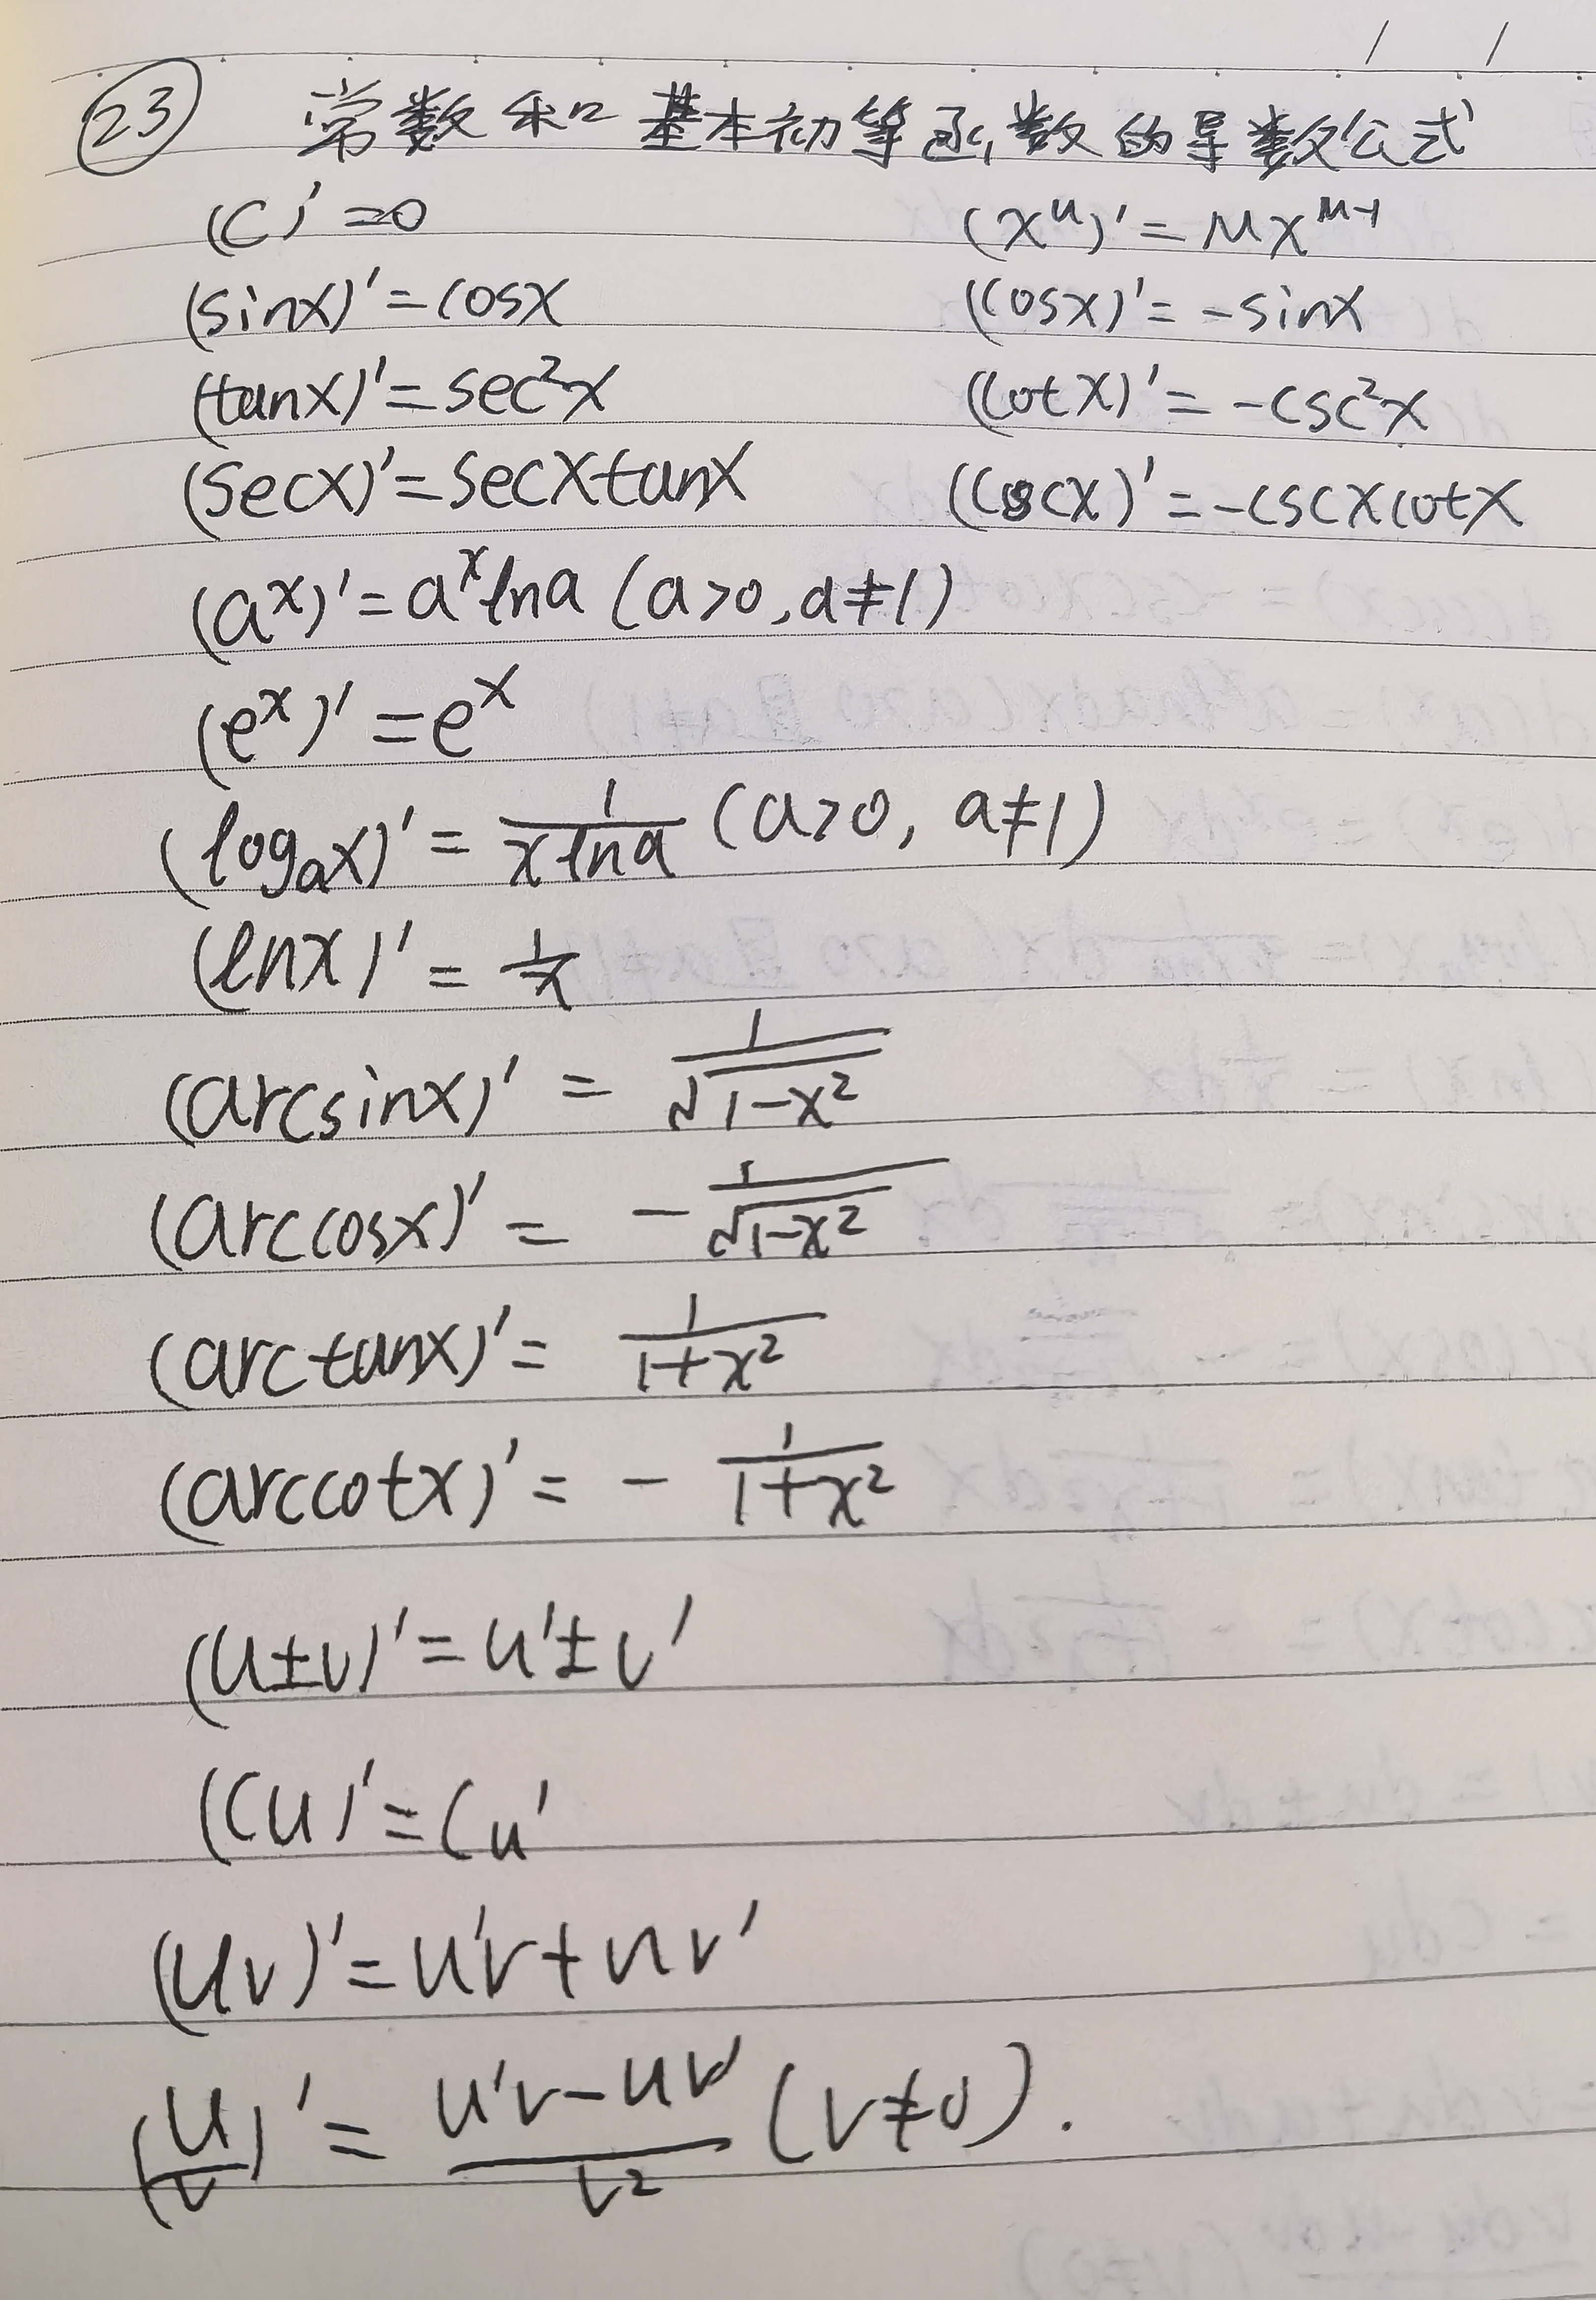 ㉓ 常数和基本初等函数的导数公式
(C)'=0 (x^μ)'=μx^(μ-1)
(sinx)'=cosx (cosx)'=-sinx
(tanx)'=sec²x (cotx)'=-csc²x
(secx)'=secxtanx (cscx)'=-cscxcotx
(a^x)'=a^x lna (a>0,a≠1)
(e^x)'=e^x
(log_a x)'=1/(xlna) (a>0, a≠1)
(lnx)'=1/x
(arcsinx)'=1/√(1-x²)
(arccosx)'=-1/√(1-x²)
(arctanx)'=1/(1+x²)
(arccotx)'=-1/(1+x²)
(u±v)'=u'±v'
(Cu)'=Cu'
(uv)'=u'v+uv'
(u/v)'=(u'v-uv')/v² (v≠0).